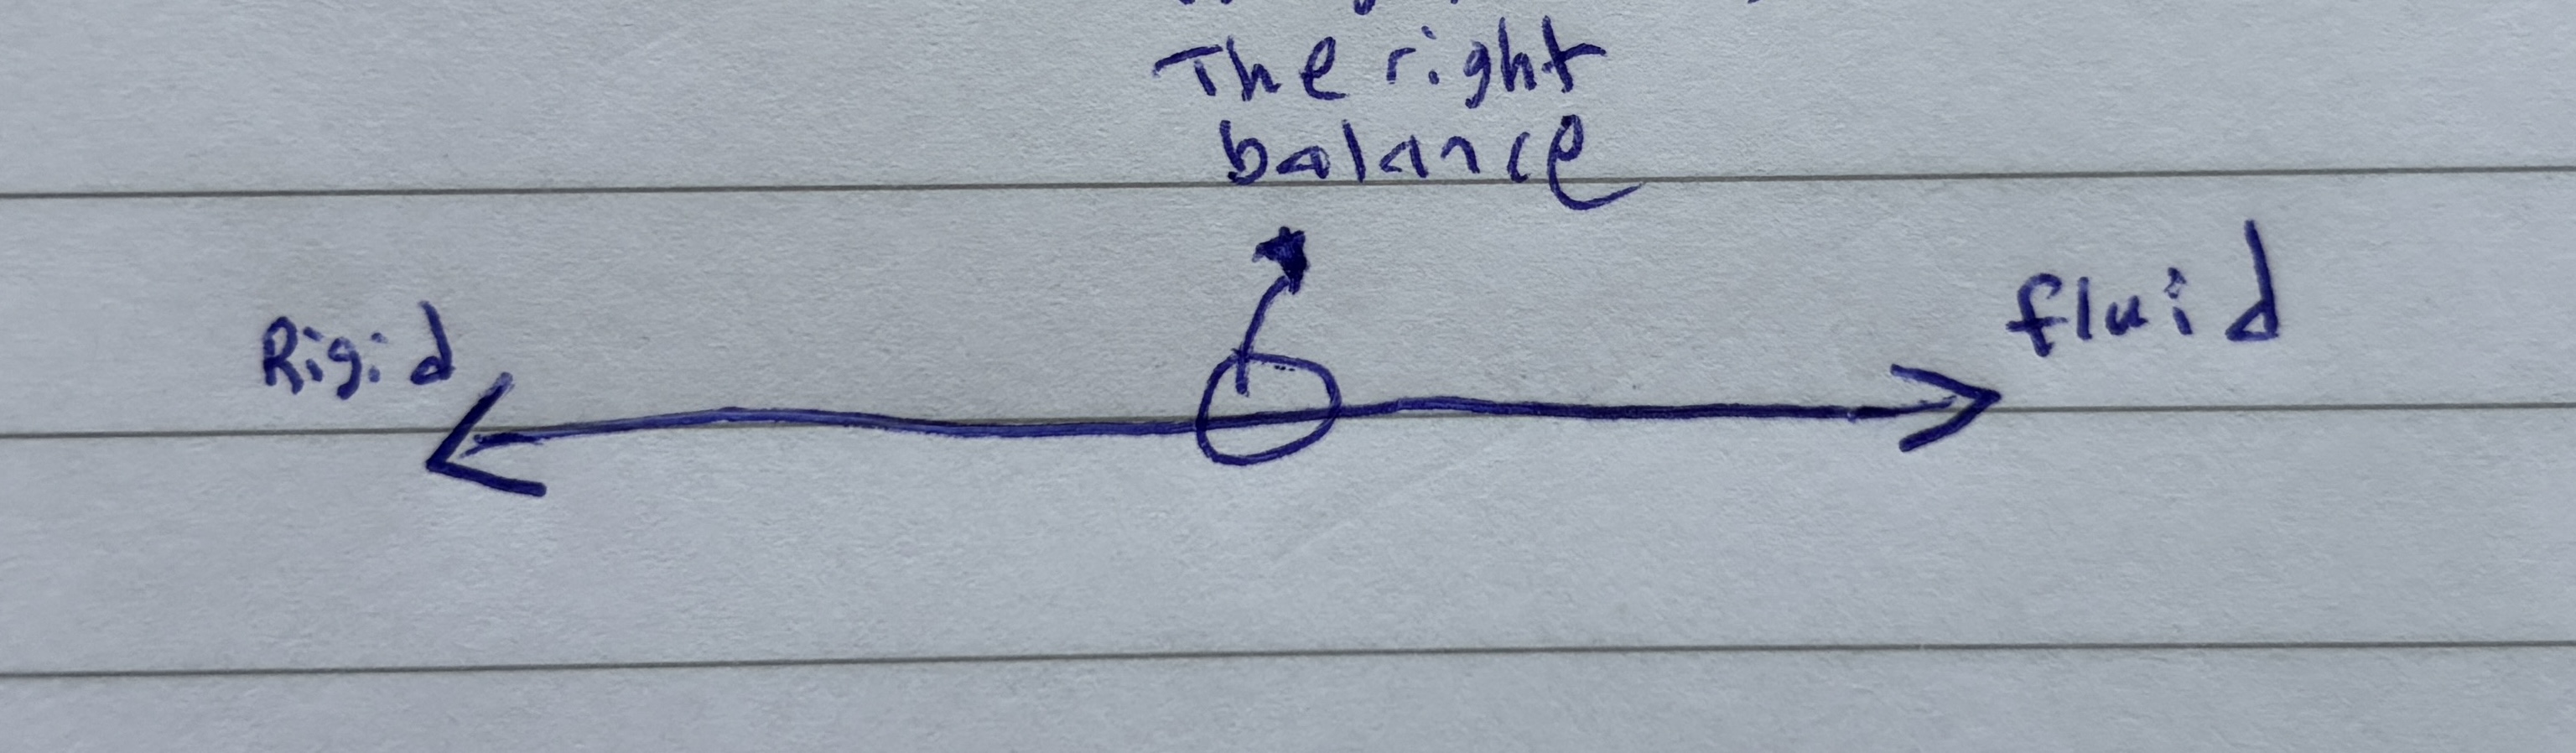 The right
balance
Rigid
fluid